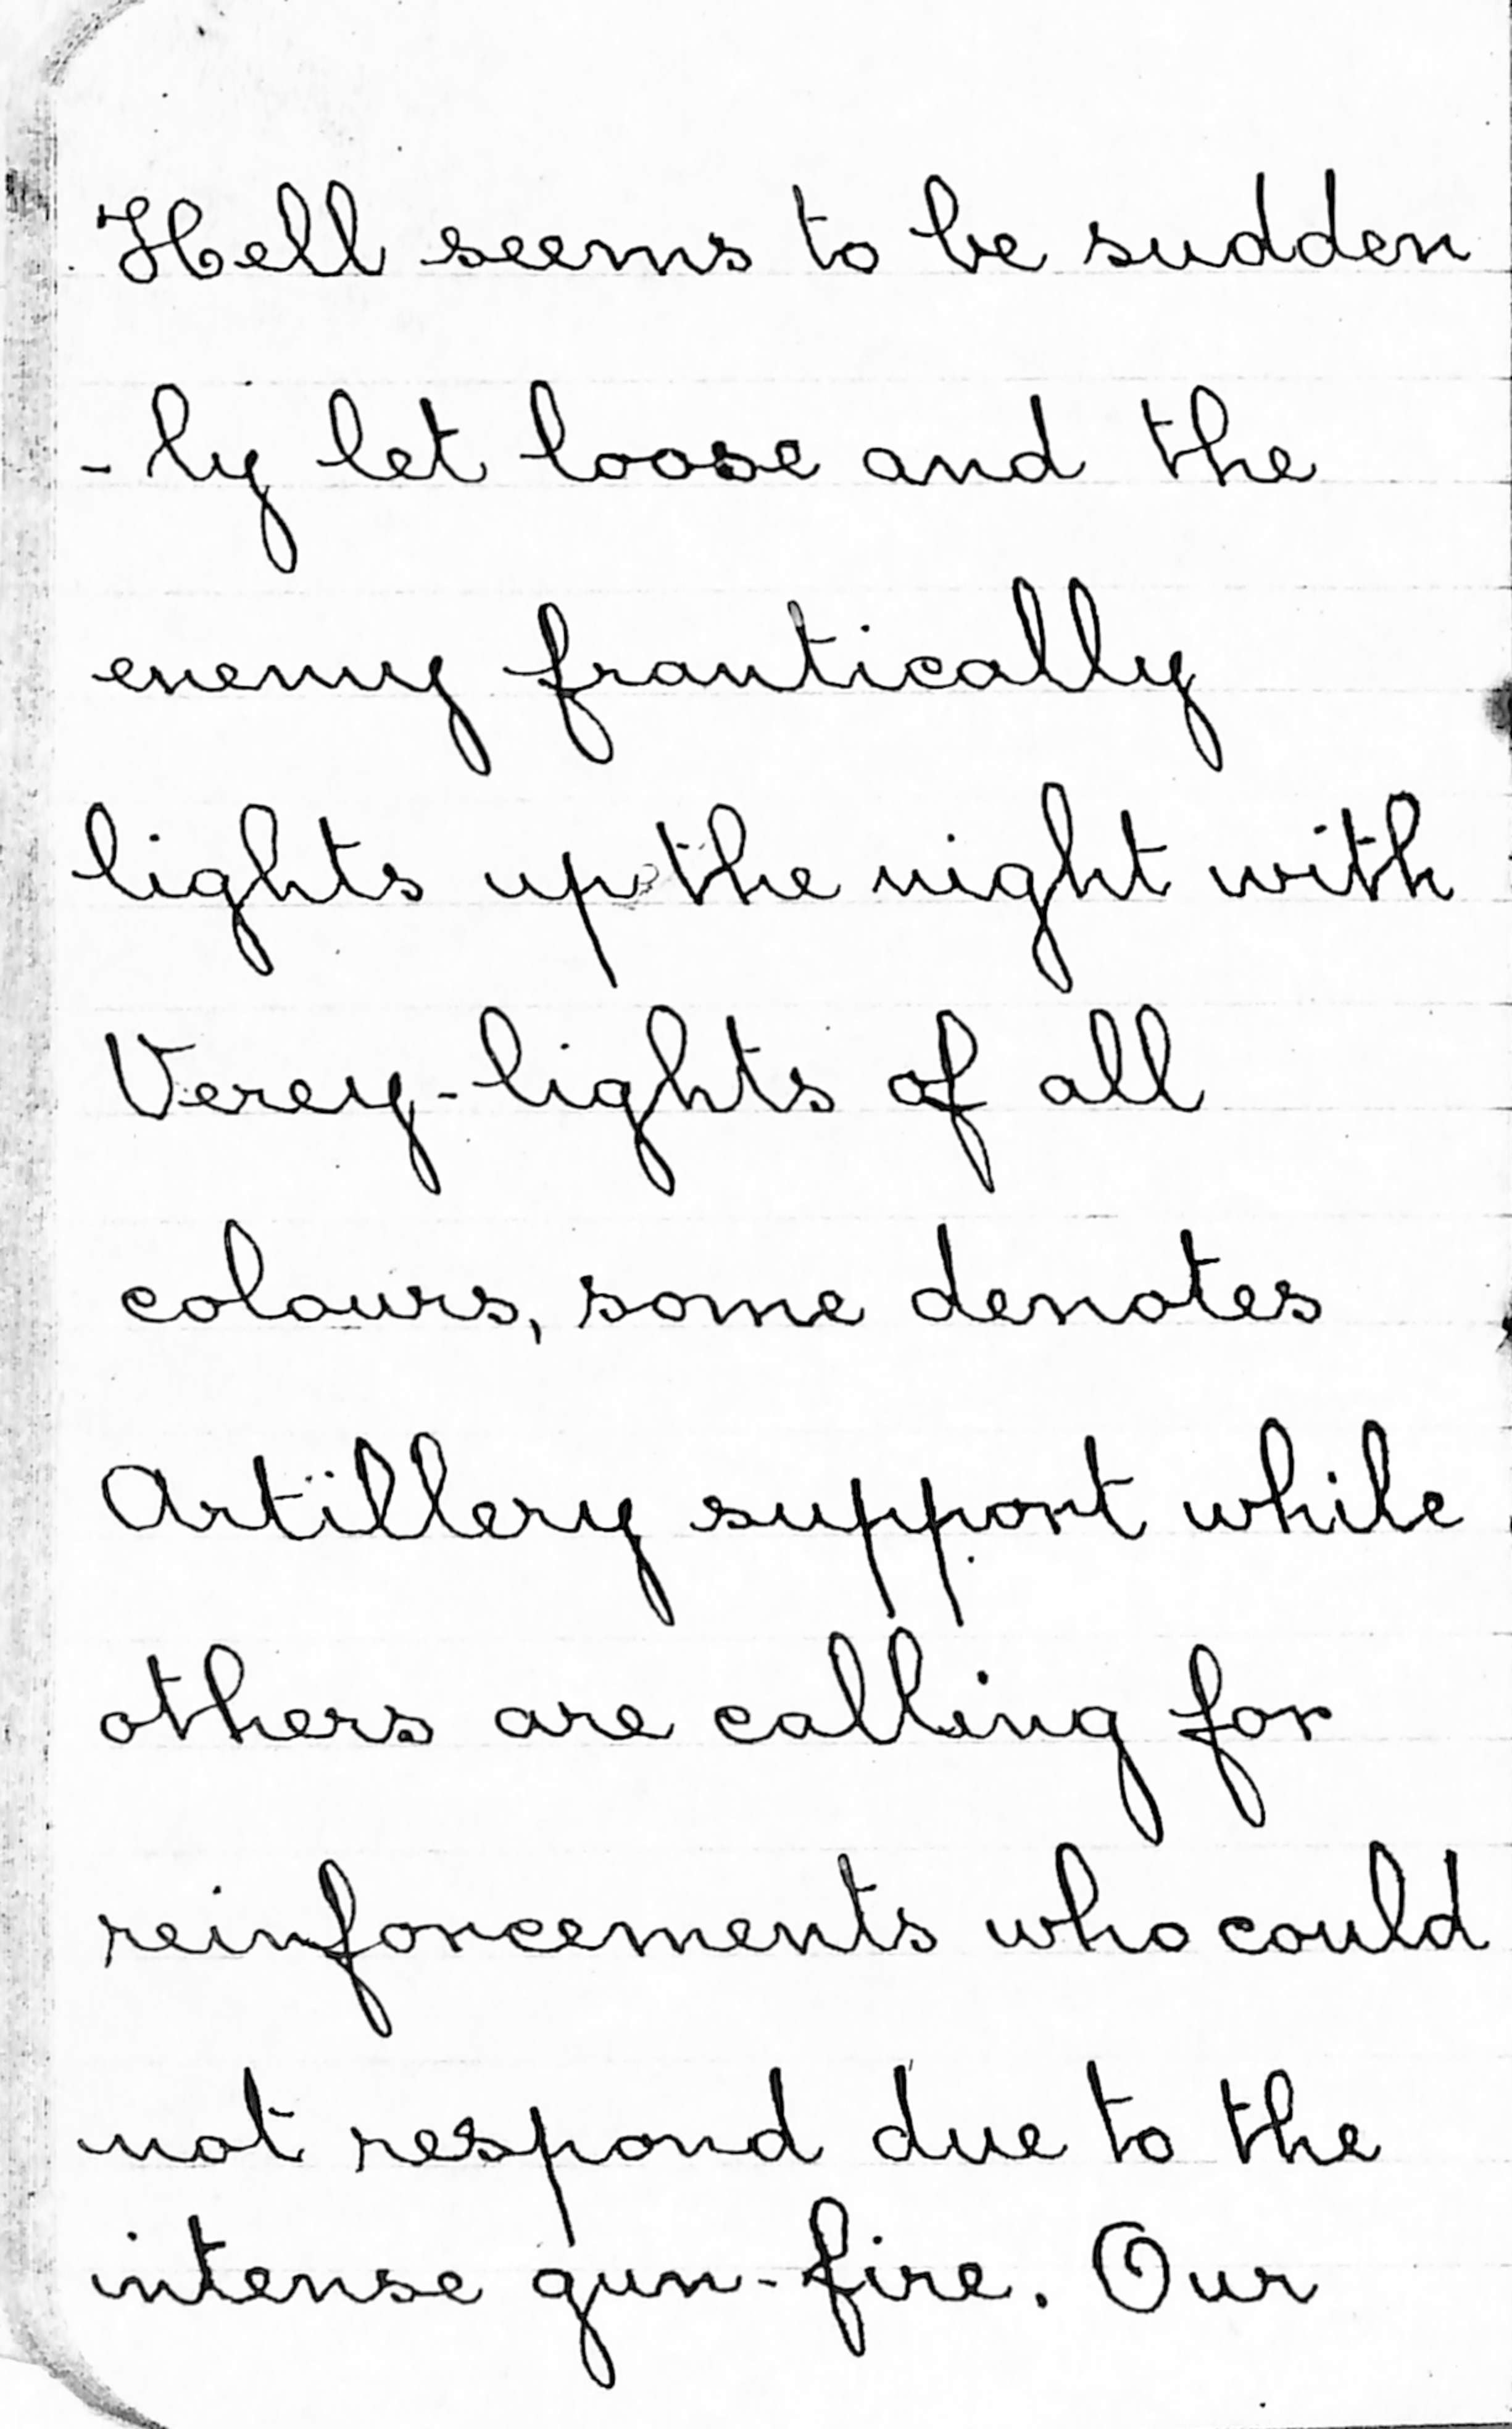 Hell seems to be sudden
-ly let loose and the
enemy frantically
lights up the night with
Verey-lights of all
colours, some denotes
Artillery support while
others are calling for
reinforcements who could
not respond due to the
intense gun-fire. Our